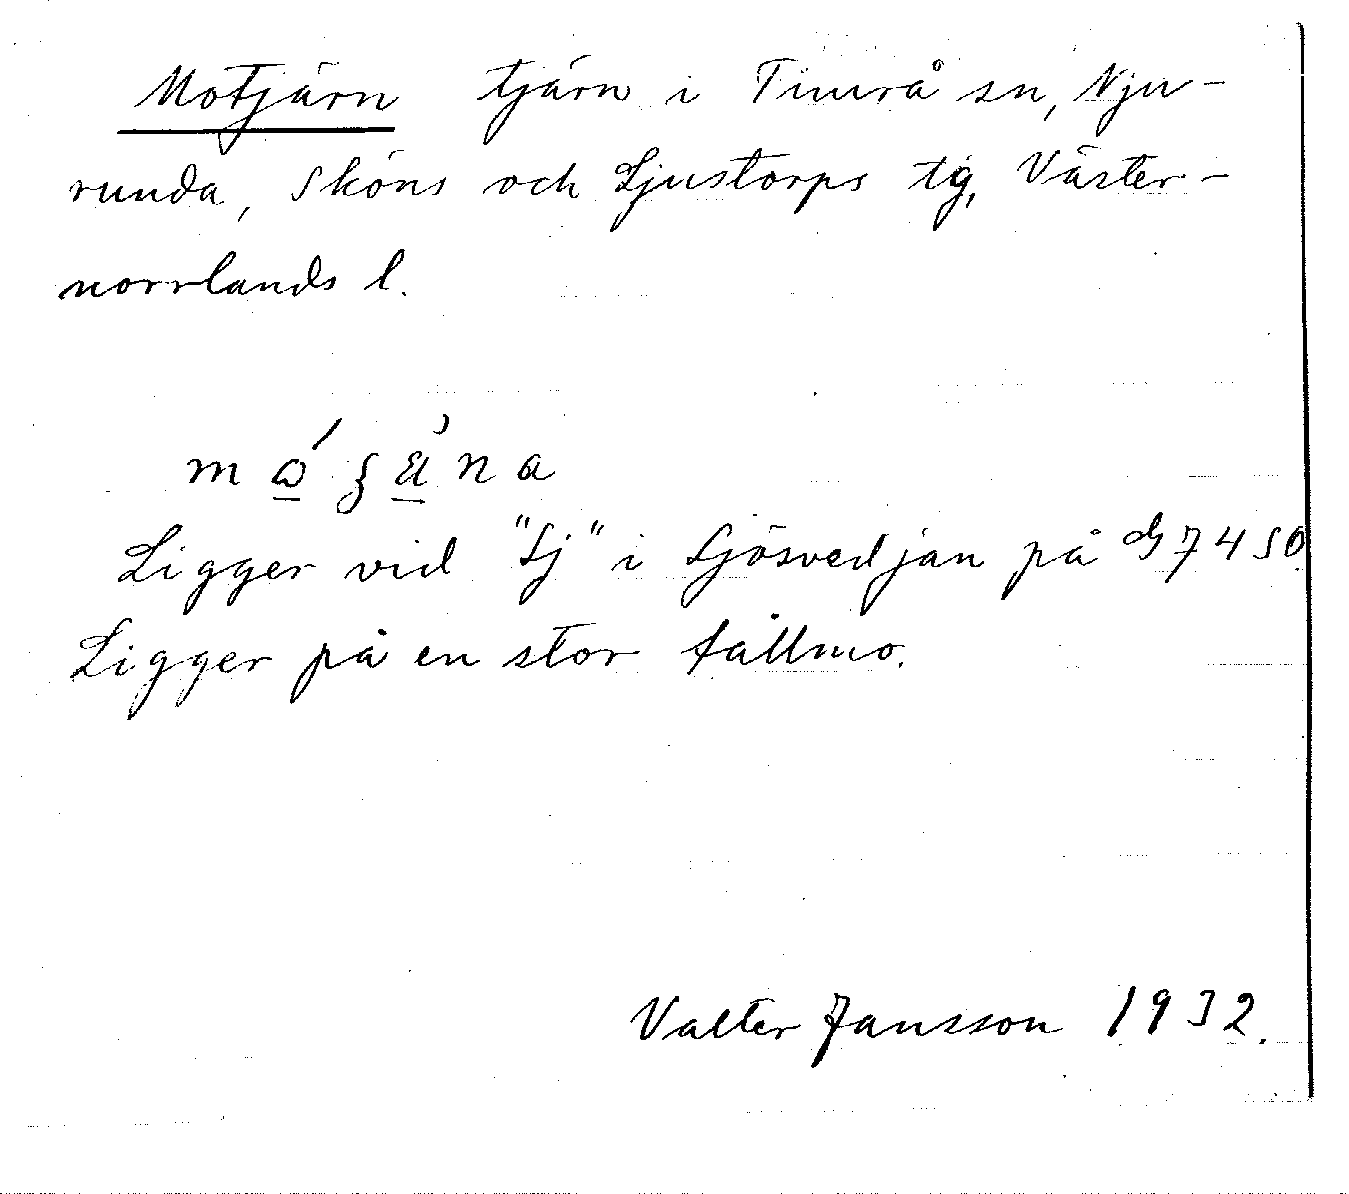 Motjärn tjärn i Timrå sn, Nju-
runda, Sköns och Ljustorps tg, Väster-
norrlands l.
Ligger vid "Sj" i Sjösvedjan på G7450.
Ligger på en stor tallmo.
Valter Jansson 1932.